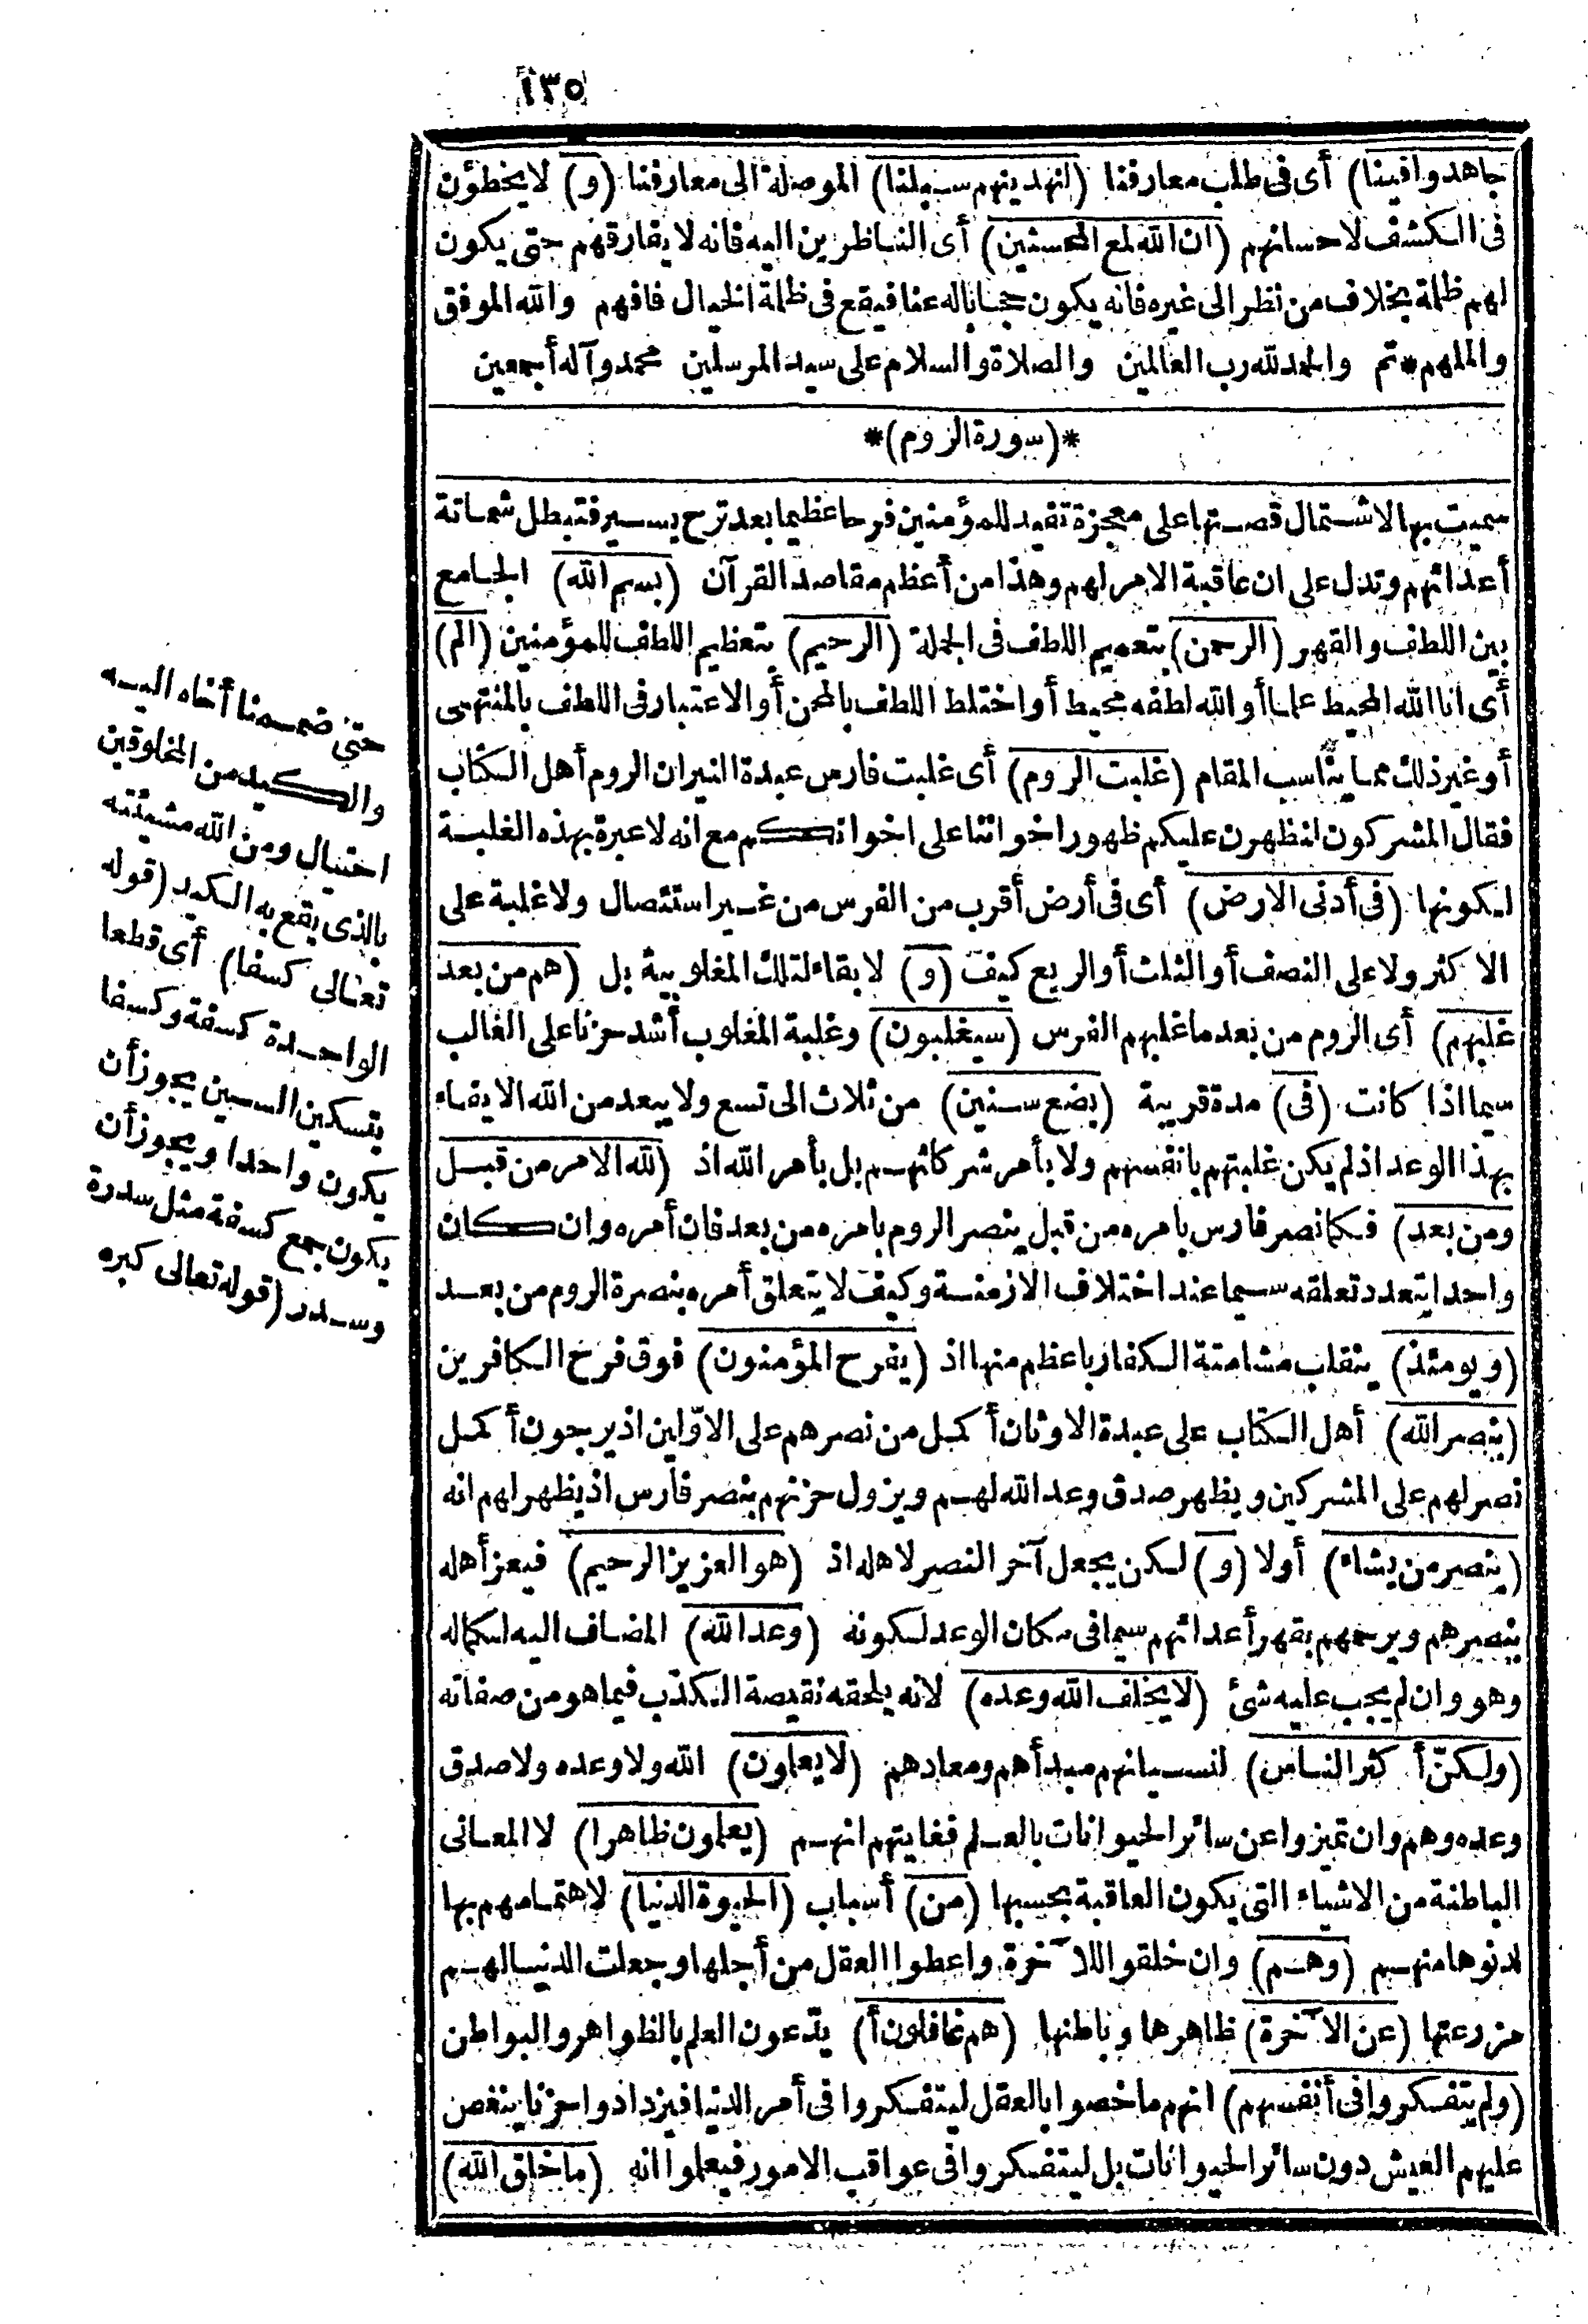 ١٣٥
جاهدوا فينا) أى فى طلب معارفنا (لنهدينهم سبلنا) الموصلة الى معارفنا (و) لا يخطؤن
فى الكشف لاحسانهم (ان الله لمع المحسنين) أى الناظرين اليه فانه لا يفارقهم حتى يكون
لهم ظلمة بخلاف من نظر الى غيره فانه يكون حجابا له عنا فيقع فى ظلمة الخيال فافهم والله الموفق
والملهم * تم والحمد لله رب العالمين والصلاة والسلام على سيد المرسلين محمد وآله أجمعين
*(سورة الروم)*
سميت بها لاشتمال قصتها على معجزة تفيد للمؤمنين فرحا عظيما بعد ترح يسير فتبطل شماتة
أعدائهم وتدل على ان عاقبة الامر لهم وهذا من أعظم مقاصد القرآن (بسم الله) الجامع
بين اللطف والقهر (الرحمن) بتعميم اللطف فى الجملة (الرحيم) بتعظيم اللطف للمؤمنين (الم)
أى انا الله المحيط علما أو الله لطفه محيط أو اختلط اللطف بالمحن أو الاعتبار فى اللطف بالمنتهى
أو غير ذلك مما يناسب المقام (غلبت الروم) أى غلبت فارس عبدة النيران الروم أهل الكتاب
فقال المشركون لنظهرن عليكم ظهور اخواننا على اخوانكم مع انه لا عبرة بهذه الغلبة
لكونها (فى أدنى الارض) أى فى أرض أقرب من الفرس من غير استئصال ولا غلبة على
الاكثر ولا على النصف أو الثلث أو الربع كيف (و) لا بقاء لتلك المغلوبية بل (هم من بعد
غلبهم) أى الروم من بعد ما غلبهم الفرس (سيغلبون) وغلبة المغلوب أشد حزنا على الغالب
سيما اذا كانت (فى) مدة قريبة (بضع سنين) من ثلاث الى تسع ولا يبعد من الله الايفاء
بهذا الوعد اذ لم يكن غلبتهم بانفسهم ولا بأمر شركائهم بل بأمر الله اذ (لله الامر من قبل
ومن بعد) فكما نصر فارس بامره من قبل ينصر الروم بامره من بعد فان أمره وان كان
واحدا يتعدد تعلقه سيما عند اختلاف الازمنة وكيف لا يتعلق أمره بنصرة الروم من بعد
(ويومئذ) ينقلب مشامتة الكفار باعظم منها اذ (يفرح المؤمنون) فوق فرح الكافرين
(بنصر الله) أهل الكتاب على عبدة الاوثان أكمل من نصرهم على الاوّلين اذ يرجون أكمل
نصر لهم على المشركين ويظهر صدق وعد الله لهم ويزول حزنهم بنصر فارس اذ يظهر لهم انه
(ينصر من يشاء) أولا (و) لكن يجعل آخر النصر لاهله اذ (هو العزيز الرحيم) فيعز أهله
بنصرهم ويرحمهم بقهر أعدائهم سيما فى مكان الوعد لكونه (وعد الله) المضاف اليه لكماله
وهو وان لم يجب عليه شئ (لا يخلف الله وعده) لانه يلحقه نقيصة الكذب فيما هو من صفاته
(ولكنّ أكثر الناس) لنسيانهم مبدأهم ومعادهم (لا يعلمون) الله ولا وعده ولا صدق
وعده وهم وان تميزوا عن سائر الحيوانات بالعلم فغايتهم انهم (يعلمون ظاهرا) لا المعانى
الباطنة من الاشياء التى يكون العاقبة بحسبها (من) أسباب (الحيوة الدنيا) لاهتمامهم بها
لدنوها منهم (وهم) وان خلقوا للآخرة واعطوا العقل من أجلها وجعلت الدنيا لهم
مزرعتها (عن الآخرة) ظاهرها وباطنها (هم غافلون أ) يدّعون العلم بالظواهر والبواطن
(ولم يتفكروا فى أنفسهم) انهم ما خصوا بالعقل ليتفكروا فى أمر الدنيا فيزدادوا حزنا ينغص
عليهم العيش دون سائر الحيوانات بل ليتفكروا فى عواقب الامور فيعلموا انه (ما خلق الله)
حتى ضممنا أخاه اليه
والكيد من المخلوقين
احتيال ومن الله مشيئته
بالذى يقع به الكيد (قوله
تعالى كسفا) أى قطعا
الواحدة كسفة وكسفا
بتسكين السين يجوز أن
يكون واحدا ويجوز أن
يكون جمع كسفة مثل سدرة
وسدر (قوله تعالى كبره